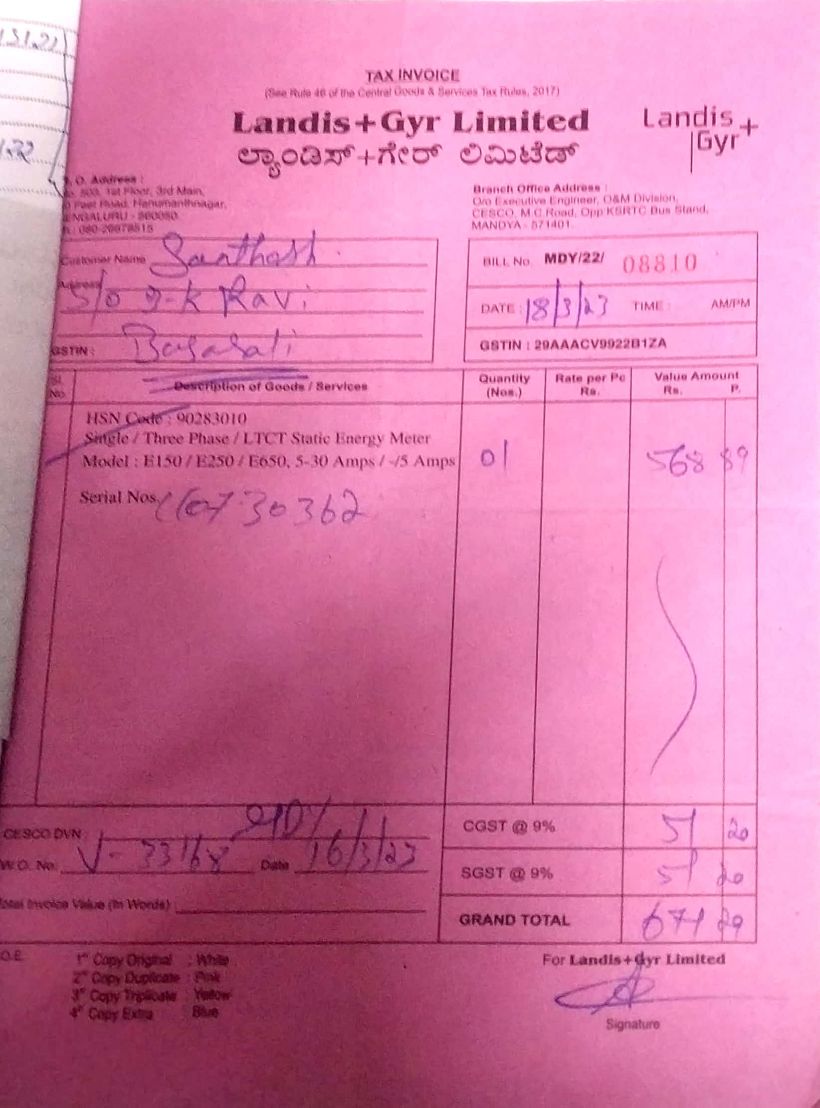 TAX INVOICE
(See Rule 46 of the Central Goods & Services Tax Rules, 2017)
Landis+Gyr Limited
ಲ್ಯಾಂಡಿಸ್+ಗೇರ್ ಲಿಮಿಟೆಡ್
Landis+
Gyr
O. Address :
1st Floor, 3rd Main,
Road, Hanumanthnagar,
Branch Office Address :
O/o Executive Engineer, O&M Division,
CESCO, M.C.Road, Opp KSRTC Bus Stand,
MANDYA - 571401
Customer Name Santhosh
Address S/o Ravi
GSTIN :
BILL No. MDY/22/ 08810
DATE : 18/3/23 TIME : AM/PM
GSTIN : 29AAACV9922B1ZA
Sl. No. Description of Goods / Services Quantity (Nos.) Rate per Pc Rs. Value Amount Rs. P.
HSN Code : 90283010
Single / Three Phase / LTCT Static Energy Meter
Model : E150 / E250 / E650, 5-30 Amps / -/5 Amps 01 568 89
Serial Nos.
CESCO DVN : MDY
W.O. No. Date 16/3/23
Total Invoice Value (In Words)
CGST @ 9% 51 20
SGST @ 9% 51 20
GRAND TOTAL 671 29
O.E.
1st Copy Original : White
2nd Copy Duplicate : Pink
3rd Copy Triplicate : Yellow
4th Copy Extra : Blue
For Landis+Gyr Limited
Signature